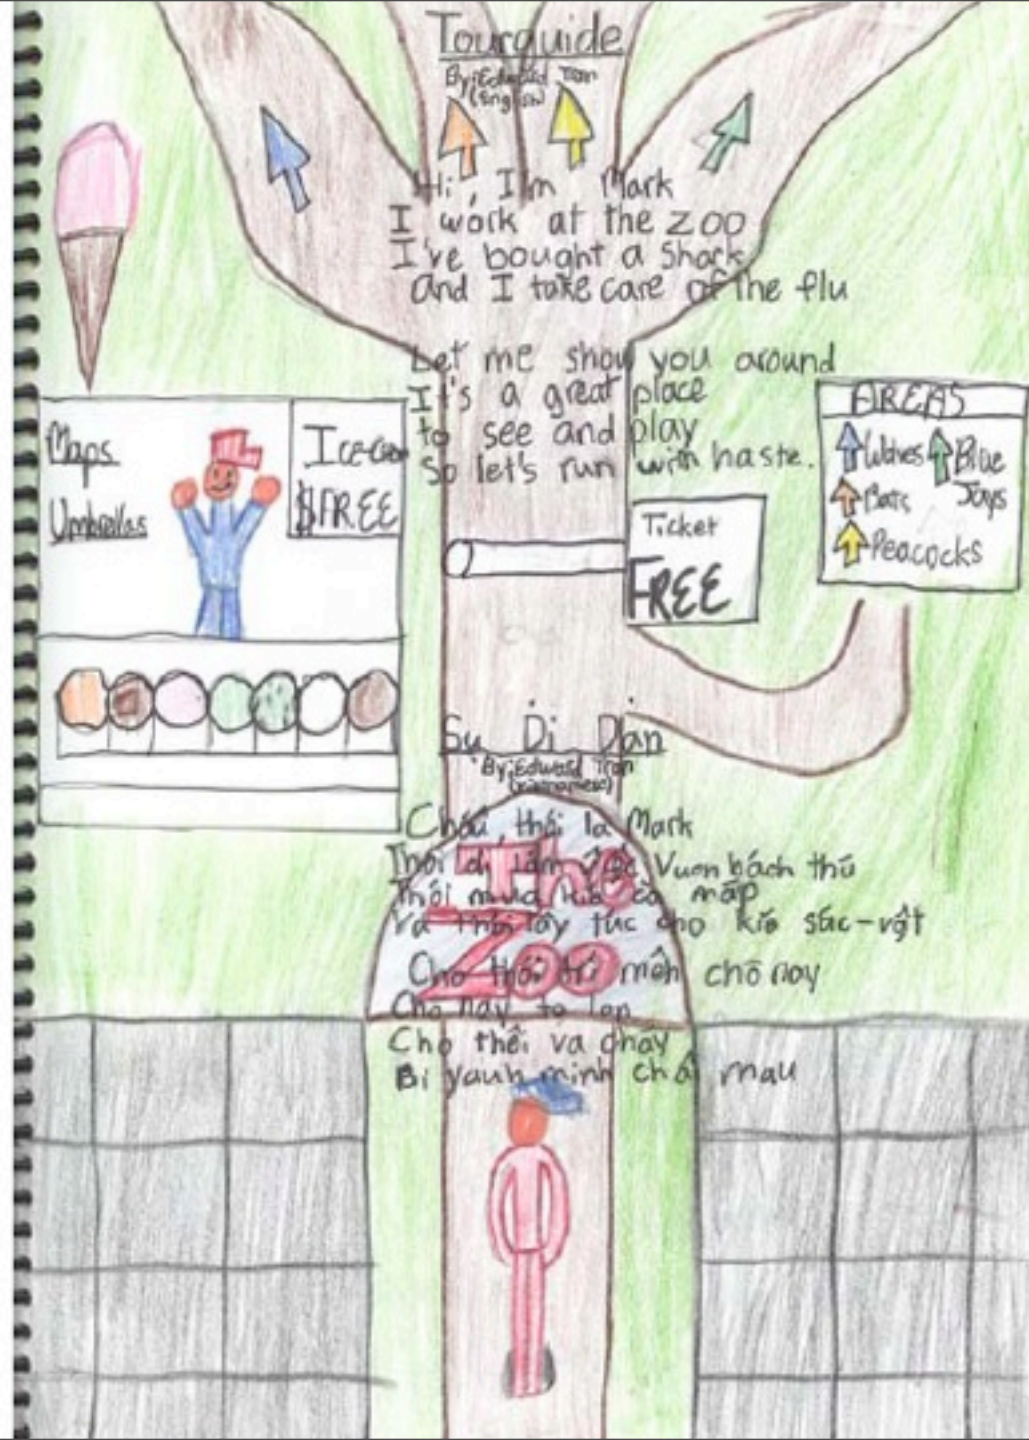 Tourguide
By: Edward Tran
(English)
Hi, I'm Mark
I work at the zoo
I've bought a shark
and I take care of the flu
Let me show you around
It's a great place
to see and play
So let's run with haste.
Maps
Umbrellas
Ice-Cream
$FREE
AREAS
Wolves
Blue Jays
Bats
Peacocks
Ticket
FREE
Sự Di Dán
By: Edward Tran
(Vietnamese)
Cháu, thôi la Mark
Thôi di làm Vuon bách thú
Thôi mua cá mập
Va thôi lấy túc cho kío súc-vật
The
Zoo
Cho thôi mên chõ noy
Cho nay to lan
Cho thêi va chay
Bi minh mau